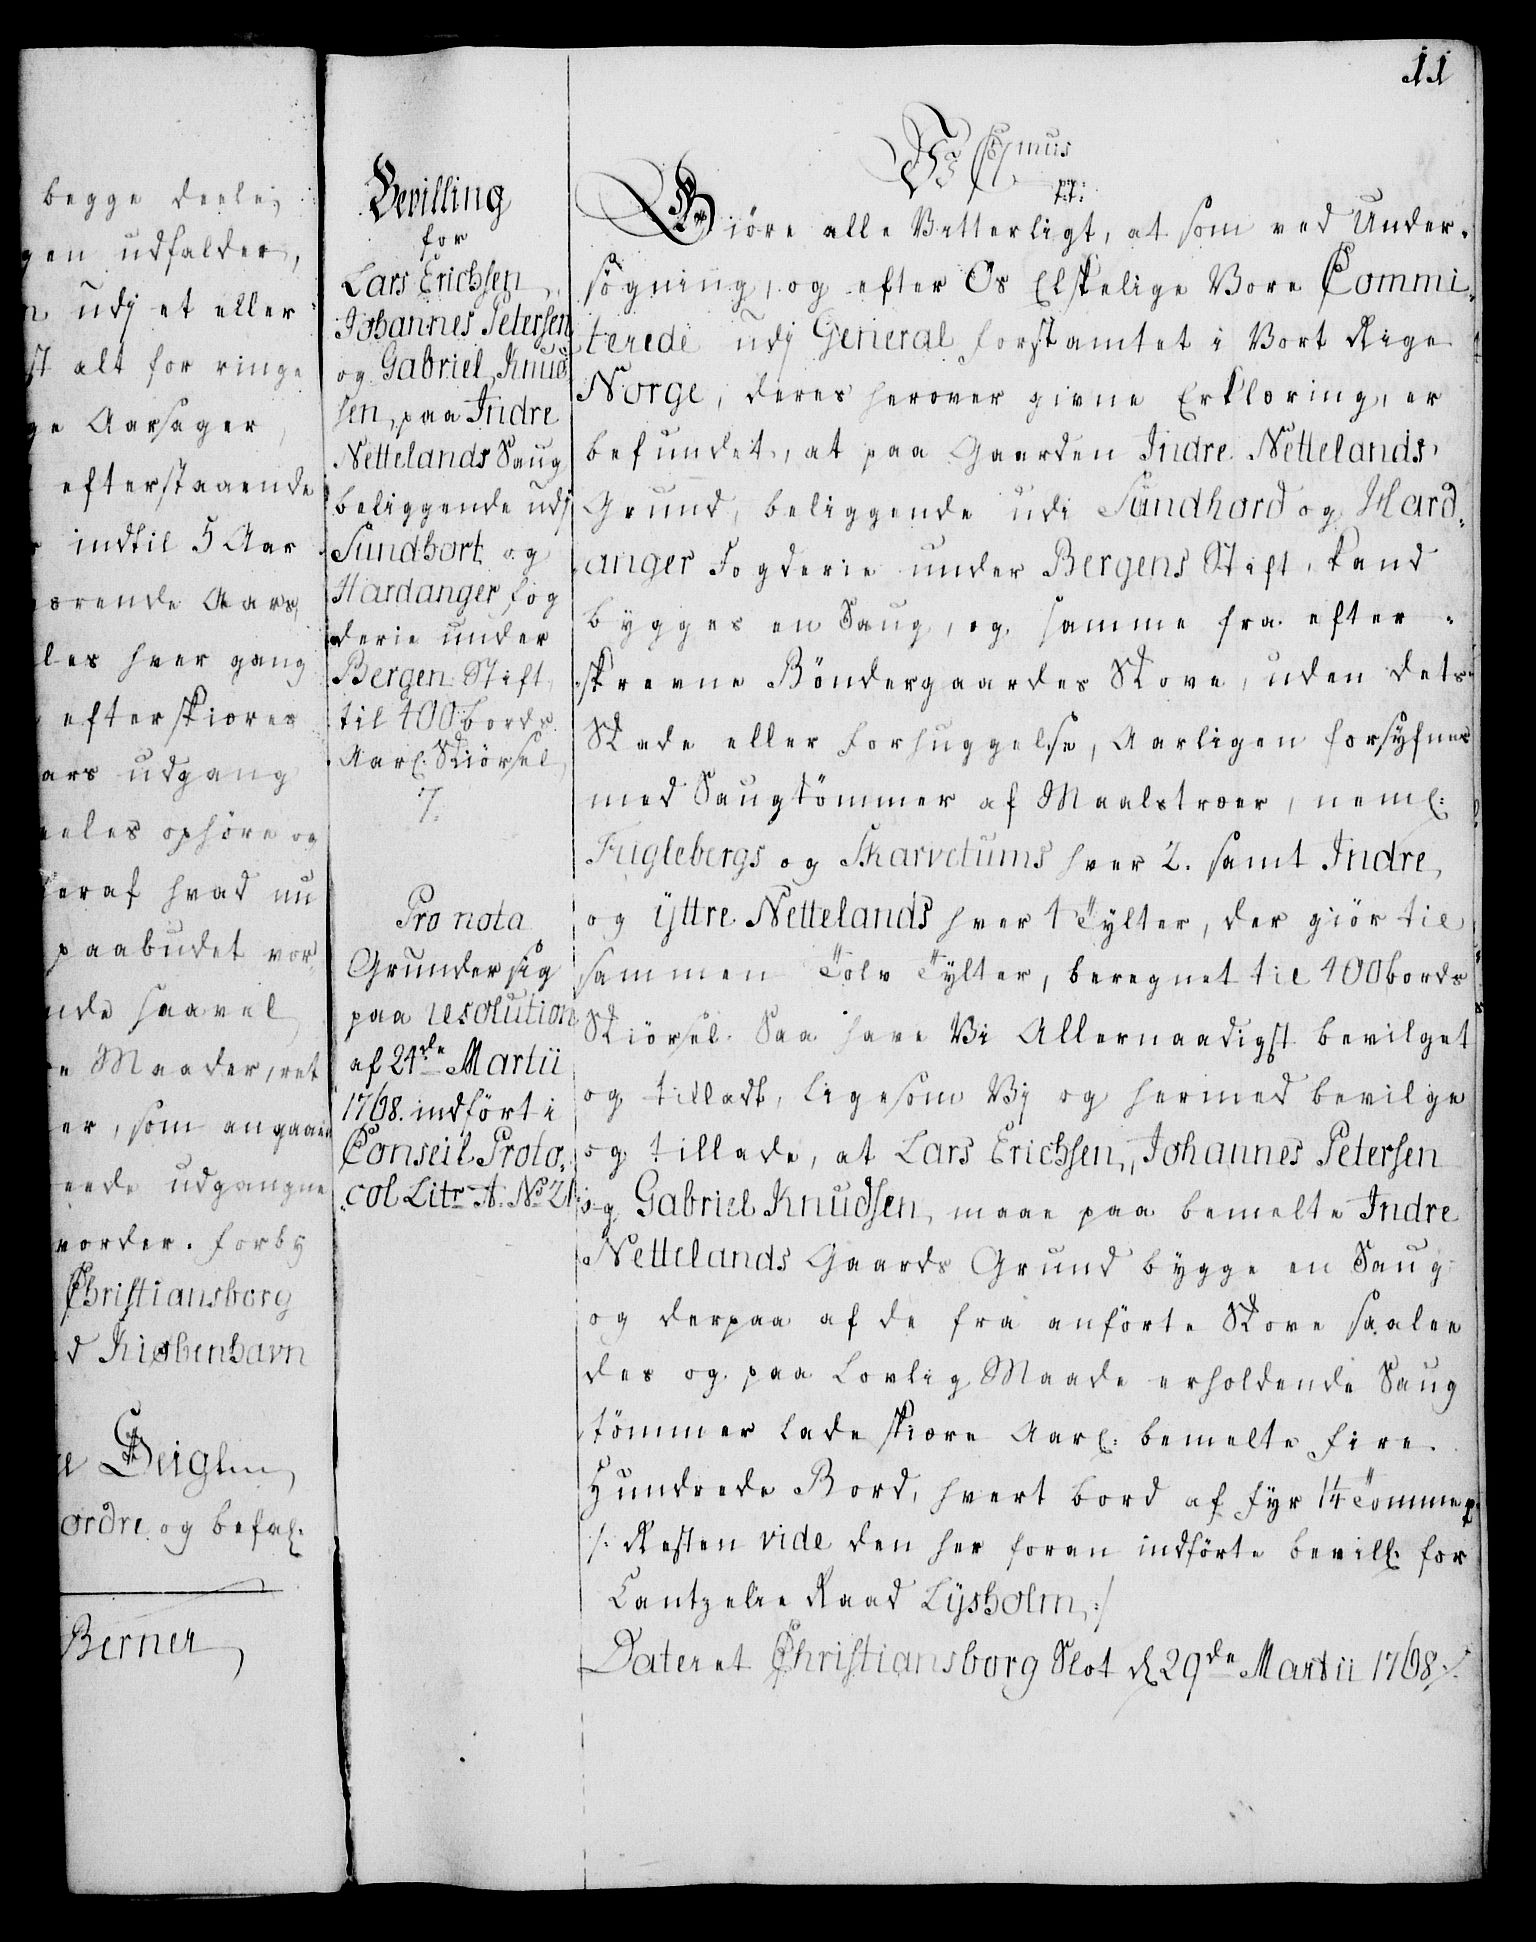 11
begge deele,
gen udfalder,
n udj et eller
st alt for ringe
ge Aarsager,
efterstaaende
indtil 5 Aar
ærende Aars,
les hver gang
efterskiæres
ars udgang
eeles ophöre og
heraf hvad nu
paabudet vor,
nde saavel
e Maader, ret
er, som angaaen
eede udgangne
vorder. Forby
Christiansborg
d Kiøbenhavn
Seigln
ordre og befal.
Berner
Bevilling
for
Lars Erichsen,
Johannes Petersen
og Gabriel Knud
sen, paa Indre
Nettelands Saug
beliggende udj
Sundhort og
Hardanger fog
derie under
Bergen Stift,
til 400 bords
Aarl. Skiörsel
7.
Pro nota
Grunder sig
paa resolution
af 24de Martii
1768. indfört i
Conseil Proto,
col Litr A. No 21
Vj C 7mus
p.p:
Giöre alle Vitterligt, at som ved Under,
sögning, og efter Os Elskelige Vore Commi,
terede udj General Forstamtet i Vort Rige
Norge, deres herover givne Erklæring, er
befundet, at paa Gaarden Indre Nettelands
Grund, beliggende udi Sundhord og Hard,
anger Fogderie under Bergens Stift, kand
bygges en Saug, og samme fra efter,
skrevne Böndergaardes Skove, uden dets
Skade eller Forhuggelse, Aarligen forsyfnes
med Saugtömmer af Maalstræer, neml:
Fuglebergs og Skarvetums hver 2. samt Indre,
og ijttre Nettelands hver 4 Tylter, der giör til
sammen Tolv Tylter, beregnet til 400 bords
Skiörsel. Saa have Vi Allernaadigst bevilget
og tilladt, ligesom Vj og hermed bevilge
og tillade, at Lars Erichsen, Johannes Petersen
og Gabriel Knudsen, maae paa bemelte Indre
Nettelands Gaards Grund bygge en Saug
og derpaa af de fra anförte Skove saalee
des og paa Lovlig Maade erholdende Saug
tömmer lade skiære Aarl: bemelte fire
Hundrede Bord, hvert bord af fyr 14 Tommer
/: Resten vide den her foran indförte bevill. for
Cantzelie Raad Lijsholm,:/
Dateret Christiansborg Slot d 29de Martii 1768 /.